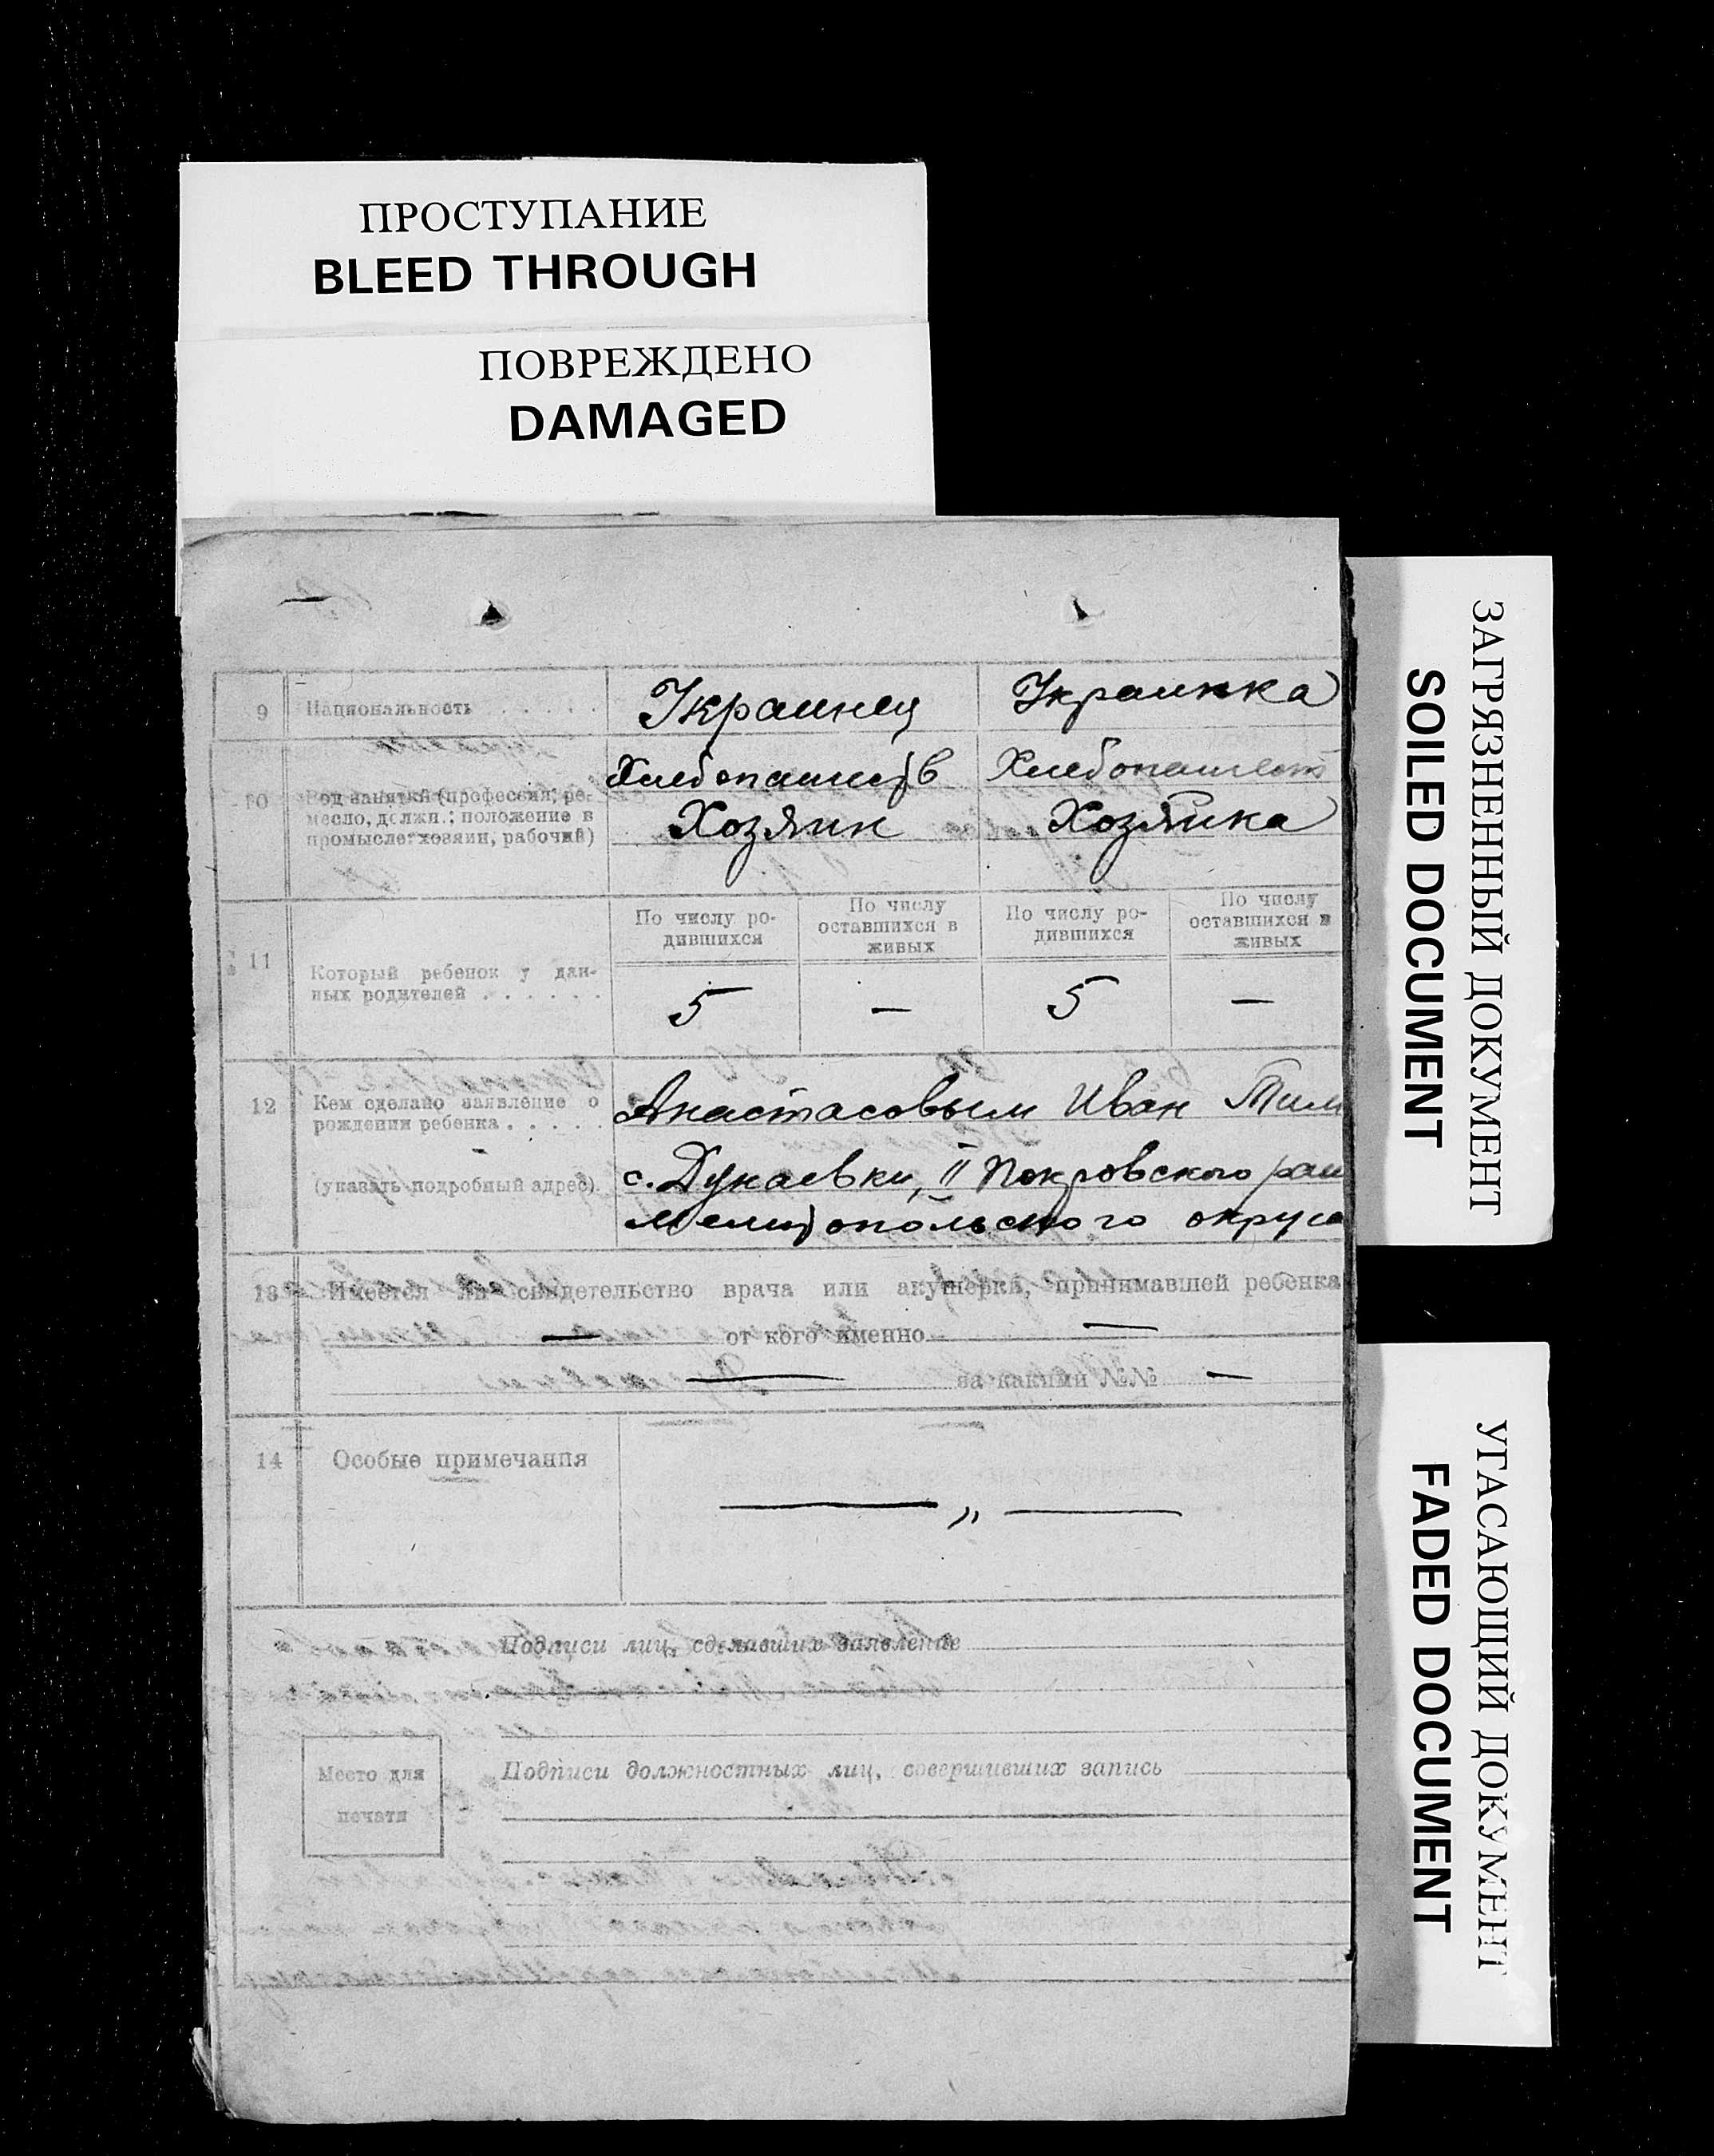 ПРОСТУПАНИЕ
BLEED THROUGH
ПОВРЕЖДЕНО
DAMAGED
ЗАГРЯЗНЕННЫЙ ДОКУМЕНТ
SOILED DOCUMENT
УГАСАЮЩИЙ ДОКУМЕНТ
FADED DOCUMENT
9 Национальность . . . . . . Украинец Украинка
Хлебопашеств Хлебопашест
10 Род занятий (профессия, ре-
месло, должн.; положение в
промысле: хозяин, рабочий) Хозяин Хозяйка
По числу ро-
дившихся
По числу
оставшихся в
живых
По числу ро-
дившихся
По числу
оставшихся в
живых
11 Который ребенок у дан-
ных родителей . . . . . . 5 — 5 —
12 Кем сделано заявление о
рождении ребенка . . . . . Анастасовым Иван Тим
(указать подробный адрес) с. Дунаевки, II Покровского рай
Мелитопольского округа
13 Имеется ли свидетельство врача или акушерки, принимавшей ребенка
— от кого именно —
— за какими №№ —
14 Особые примечания
— „ —
Подписи лиц, сделавших заявление
Место для
печати
Подписи должностных лиц, совершивших запись